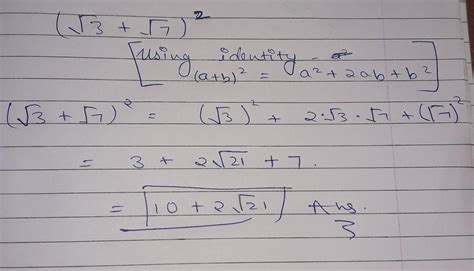 (√3 + √7)²
[using identity -
(a+b)² = a² + 2ab + b²]
(√3 + √7)² = (√3)² + 2·√3·√7 + (√7)²
= 3 + 2√21 + 7.
= 10 + 2√21 Ans.